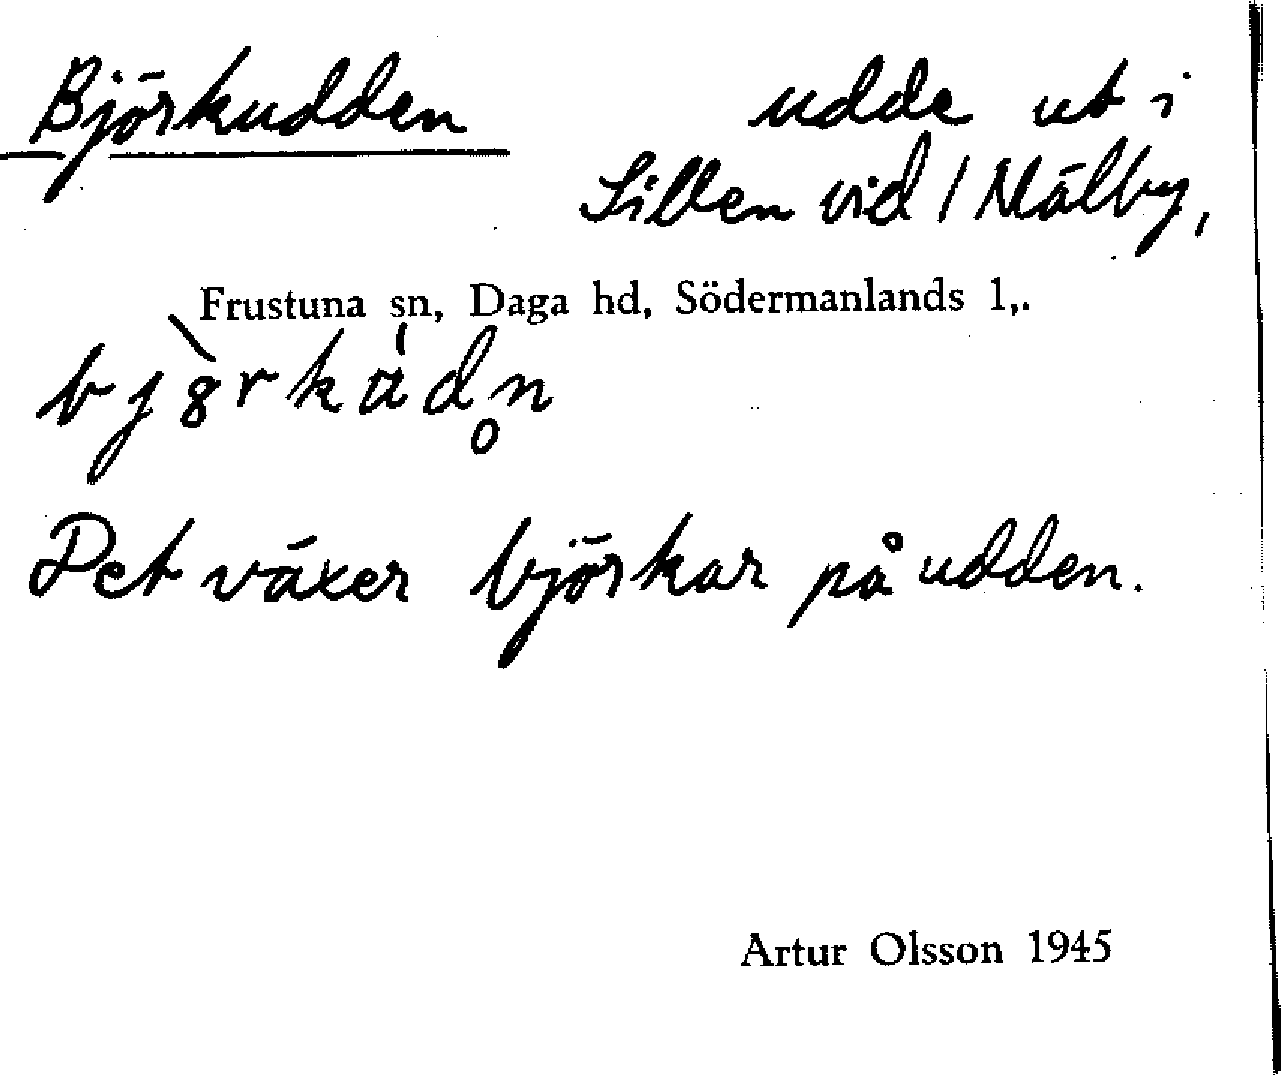 Björkudden udde ut i
Sillen vid / Nälby,
Frustuna sn, Daga hd, Södermanlands l,.
Det växer björkar på udden.
Artur Olsson 1945